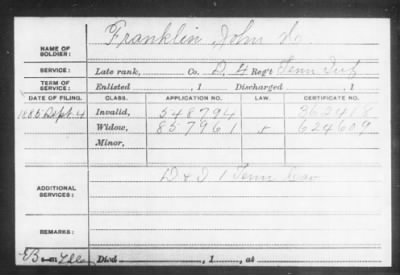 NAME OF SOLDIER: Franklin, John
SERVICE: Late rank, Co. D, 4 Reg't Tenn Inf
TERM OF SERVICE: Enlisted , 1 Discharged , 1
DATE OF FILING. CLASS. APPLICATION NO. LAW. CERTIFICATE NO.
1885 Sept. 4 Invalid, 548794
Widow, 857961 r 624609
Minor,
ADDITIONAL SERVICES: D & I 1 Tenn Cav
REMARKS:
Died , 1 , at